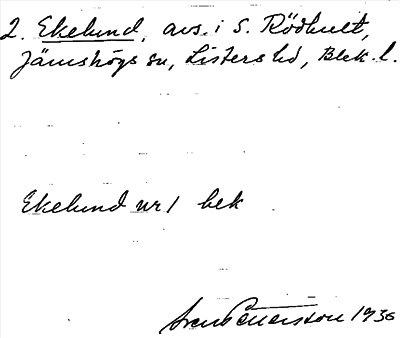 2. Ekelund, avs. i S. Rödhult,
Jämshögs sn, Listers hd, Blek. l.
Ekelund nr 1 bek
Sven Pettersson 1936